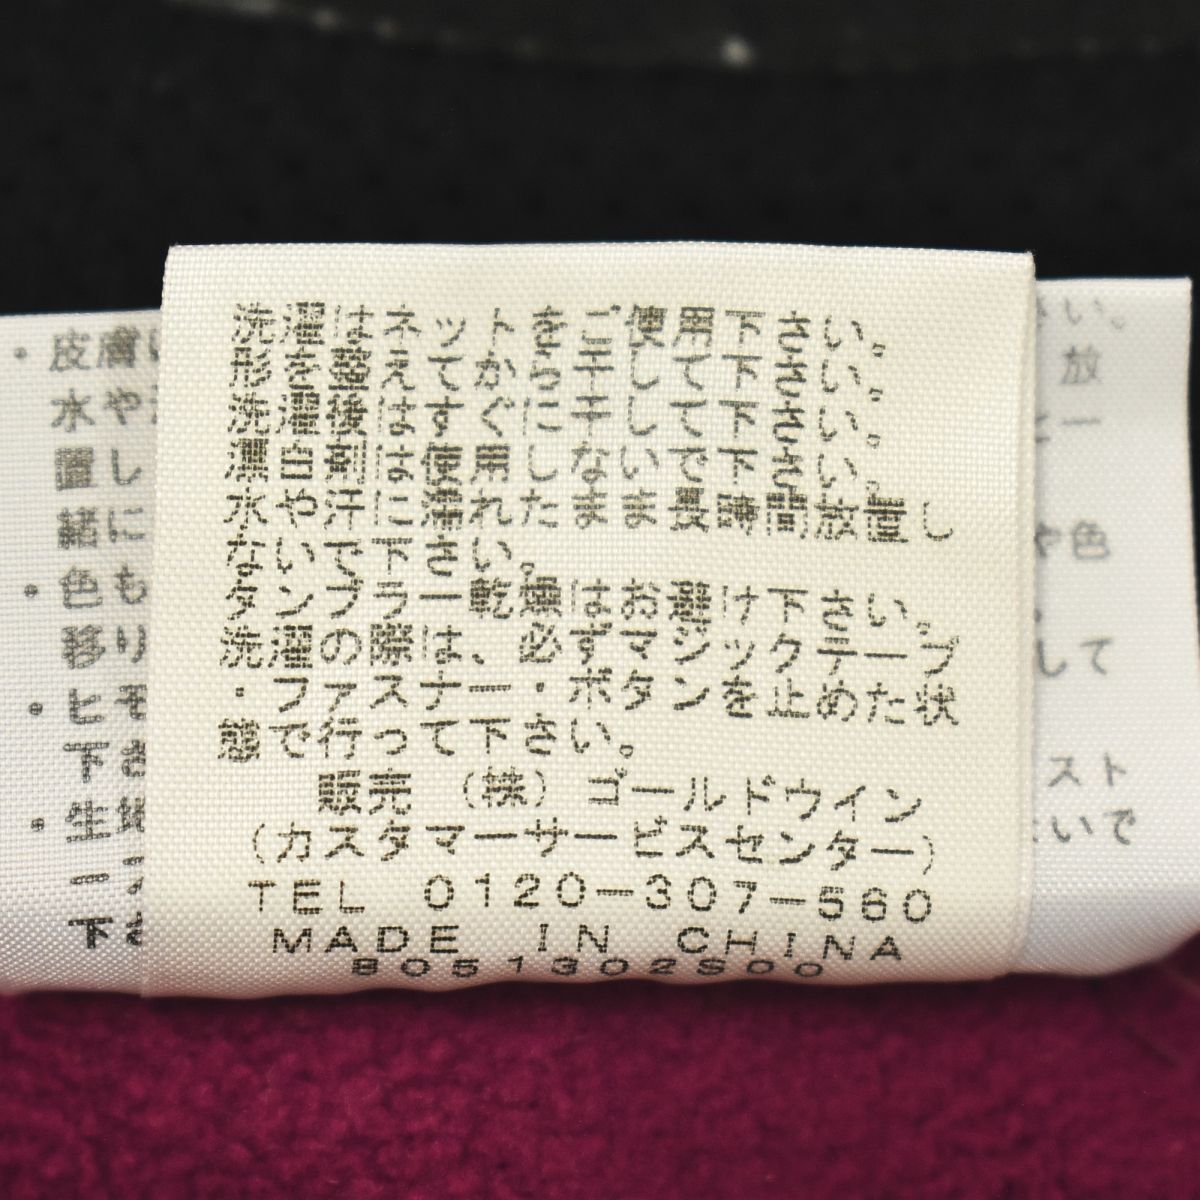 洗濯はネットをご使用下さい。
形を整えてから干して下さい。
洗濯後はすぐに干して下さい。
漂白剤は使用しないで下さい。
水や汗に濡れたまま長時間放置し
ないで下さい。
タンブラー乾燥はお避け下さい。
洗濯の際は、必ずマジックテープ
・ファスナー・ボタンを止めた状
態で行って下さい。
販売 (株) ゴールドウイン
(カスタマーサービスセンター)
TEL 0120-307-560
MADE IN CHINA
B051302S00
・皮膚
水や
置し
緒に
・色も
移り
・ヒ
下さ
・生地
ー
下さ
い。
放
ー
や色
して
スト
いで